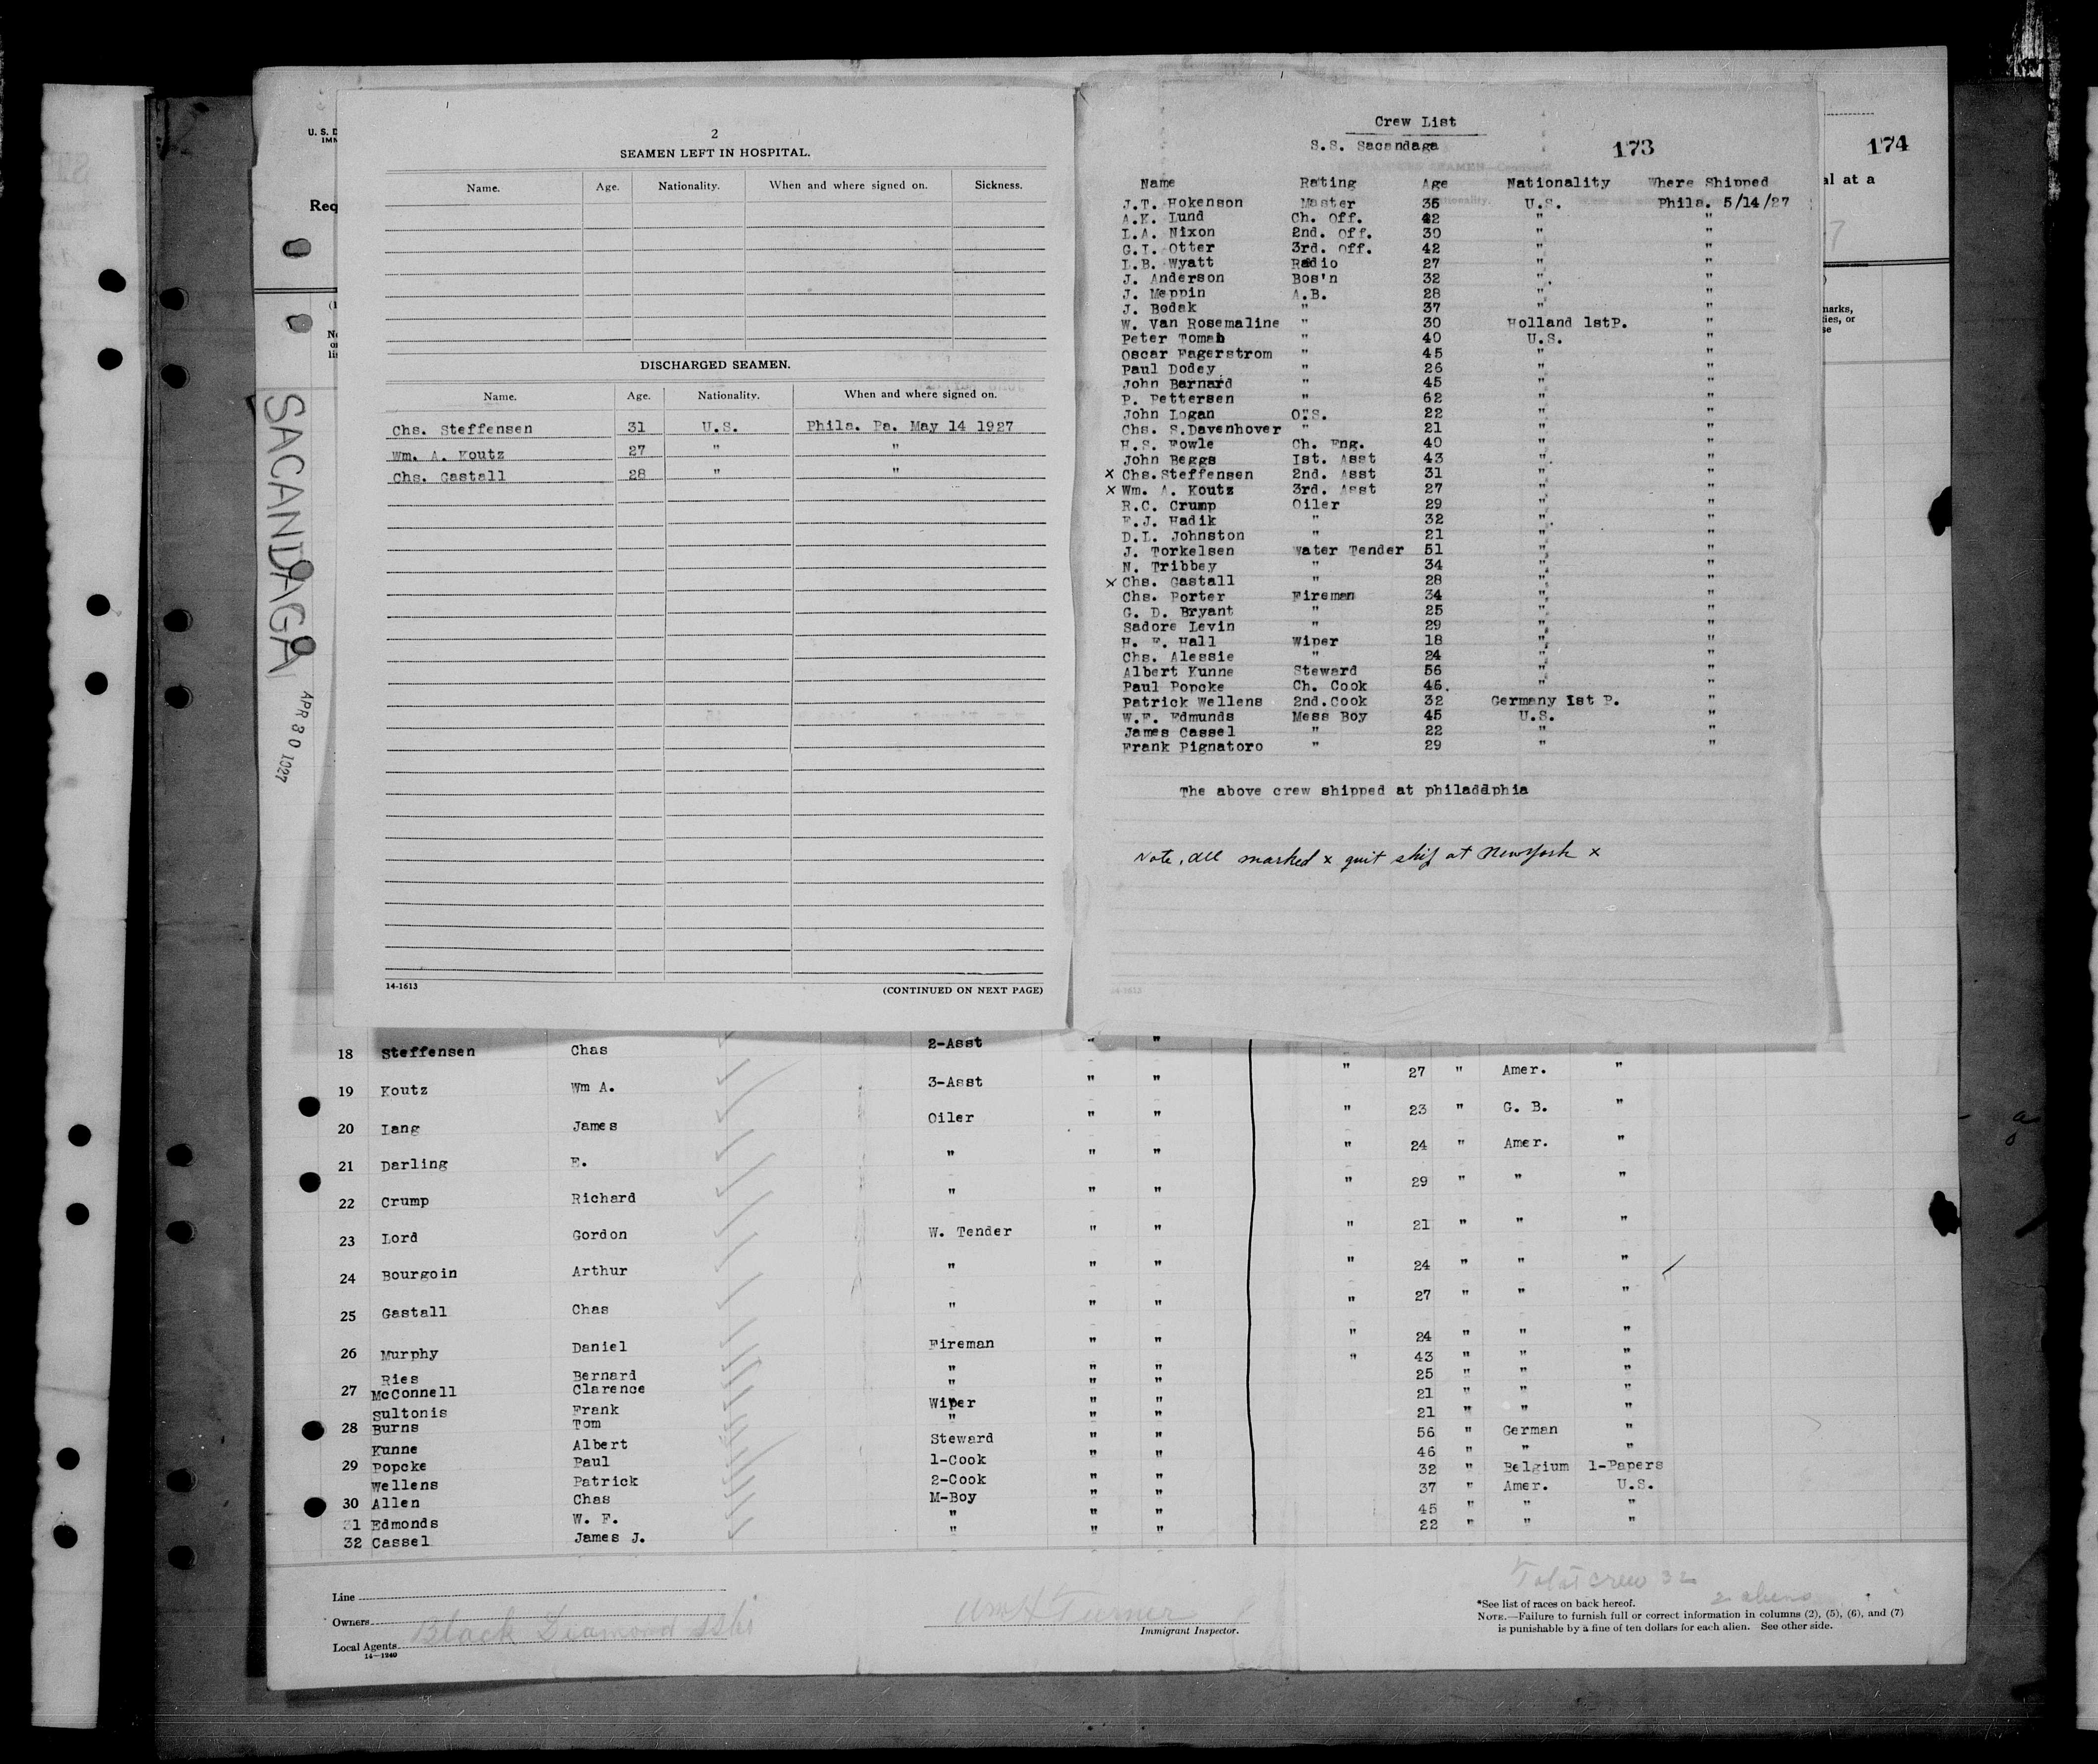 2
SEAMEN LEFT IN HOSPITAL.
Name. Age. Nationality. When and where signed on. Sickness.
DISCHARGED SEAMEN.
Name. Age. Nationality. When and where signed on.
Chs. Steffensen 31 U.S. Phila. Pa. May 14 1927
Wm. A. Koutz 27 " "
Chs. Gastall 28 " "
14-1613 (CONTINUED ON NEXT PAGE)
Crew List
S.S. Sacandaga
173
174
Name Rating Age Nationality Where Shipped
J.T. Hokenson Master 36 U.S. Phila. 5/14/27
A.K. Lund Ch. Off. 42 " "
L.A. Nixon 2nd. Off. 30 " "
G.I. Otter 3rd. Off. 42 " "
L.B. Wyatt Radio 27 " "
J. Anderson Bos'n 32 " "
J. Meppin A.B. 28 " "
J. Bodak " 37 " "
W. Van Rosemaline " 30 Holland 1stP. "
Peter Tomah " 40 U.S. "
Oscar Fagerstrom " 45 " "
Paul Dodey " 26 " "
John Barnard " 45 " "
P. Pettersen " 62 " "
John Logan O.S. 22 " "
Chs. S.Davenhover " 21 " "
H.S. Fowle Ch. Eng. 40 " "
John Beggs 1st. Asst 43 " "
x Chs.Steffensen 2nd. Asst 31 " "
x Wm. A. Koutz 3rd. Asst 27 " "
R.C. Crump Oiler 29 " "
F.J. Hadik " 32 " "
D.L. Johnston " 21 " "
J. Torkelsen Water Tender 51 " "
N. Tribbey " 34 " "
x Chs. Gastall " 28 " "
Chs. Porter Fireman 34 " "
G. D. Bryant " 25 " "
Sadore Levin " 29 " "
H. F. Hall Wiper 18 " "
Chs. Alessie " 24 " "
Albert Kunne Steward 56 " "
Paul Popcke Ch. Cook 46. " "
Patrick Wellens 2nd.Cook 32 Germany 1st P. "
W.F. Edmunds Mess Boy 45 U.S. "
James Cassel " 22 " "
Frank Pignatoro " 29 " "
The above crew shipped at philaddphia
Note, all marked x quit ship at New York x
U. S. D
IMM
Req
al at a
SACANDAGA
APR 30 1927
18 Steffensen Chas 2-Asst " "
19 Koutz Wm A. 3-Asst " " " 27 " Amer. "
20 Lang James Oiler " " " 23 " G. B. "
21 Darling E. " " " " 24 " Amer. "
22 Crump Richard " " " " 29 " " "
23 Lord Gordon W. Tender " " " 21 " " "
24 Bourgoin Arthur " " " " 24 " " "
25 Gastall Chas " " " " 27 " " "
26 Murphy Daniel Fireman " " " 24 " " "
Ries Bernard " " " " 43 " " "
27 McConnell Clarence " " " 25 " " "
Sultonis Frank Wiper " " 21 " " "
28 Burns Tom " " " 21 " " "
Kunne Albert Steward " " 56 " German "
29 Popcke Paul 1-Cook " " 46 " " "
Wellens Patrick 2-Cook " " 32 " Belgium 1-Papers
30 Allen Chas M-Boy " " 37 " Amer. U.S.
31 Edmonds W. F. " " " 45 " " "
32 Cassel James J. " " " 22 " " "
Total crew 32
2 aliens
Line
Owners
Local Agents
Black Diamond
14-1240
Wm H Turner
Immigrant Inspector.
*See list of races on back hereof.
NOTE.—Failure to furnish full or correct information in columns (2), (5), (6), and (7)
is punishable by a fine of ten dollars for each alien. See other side.